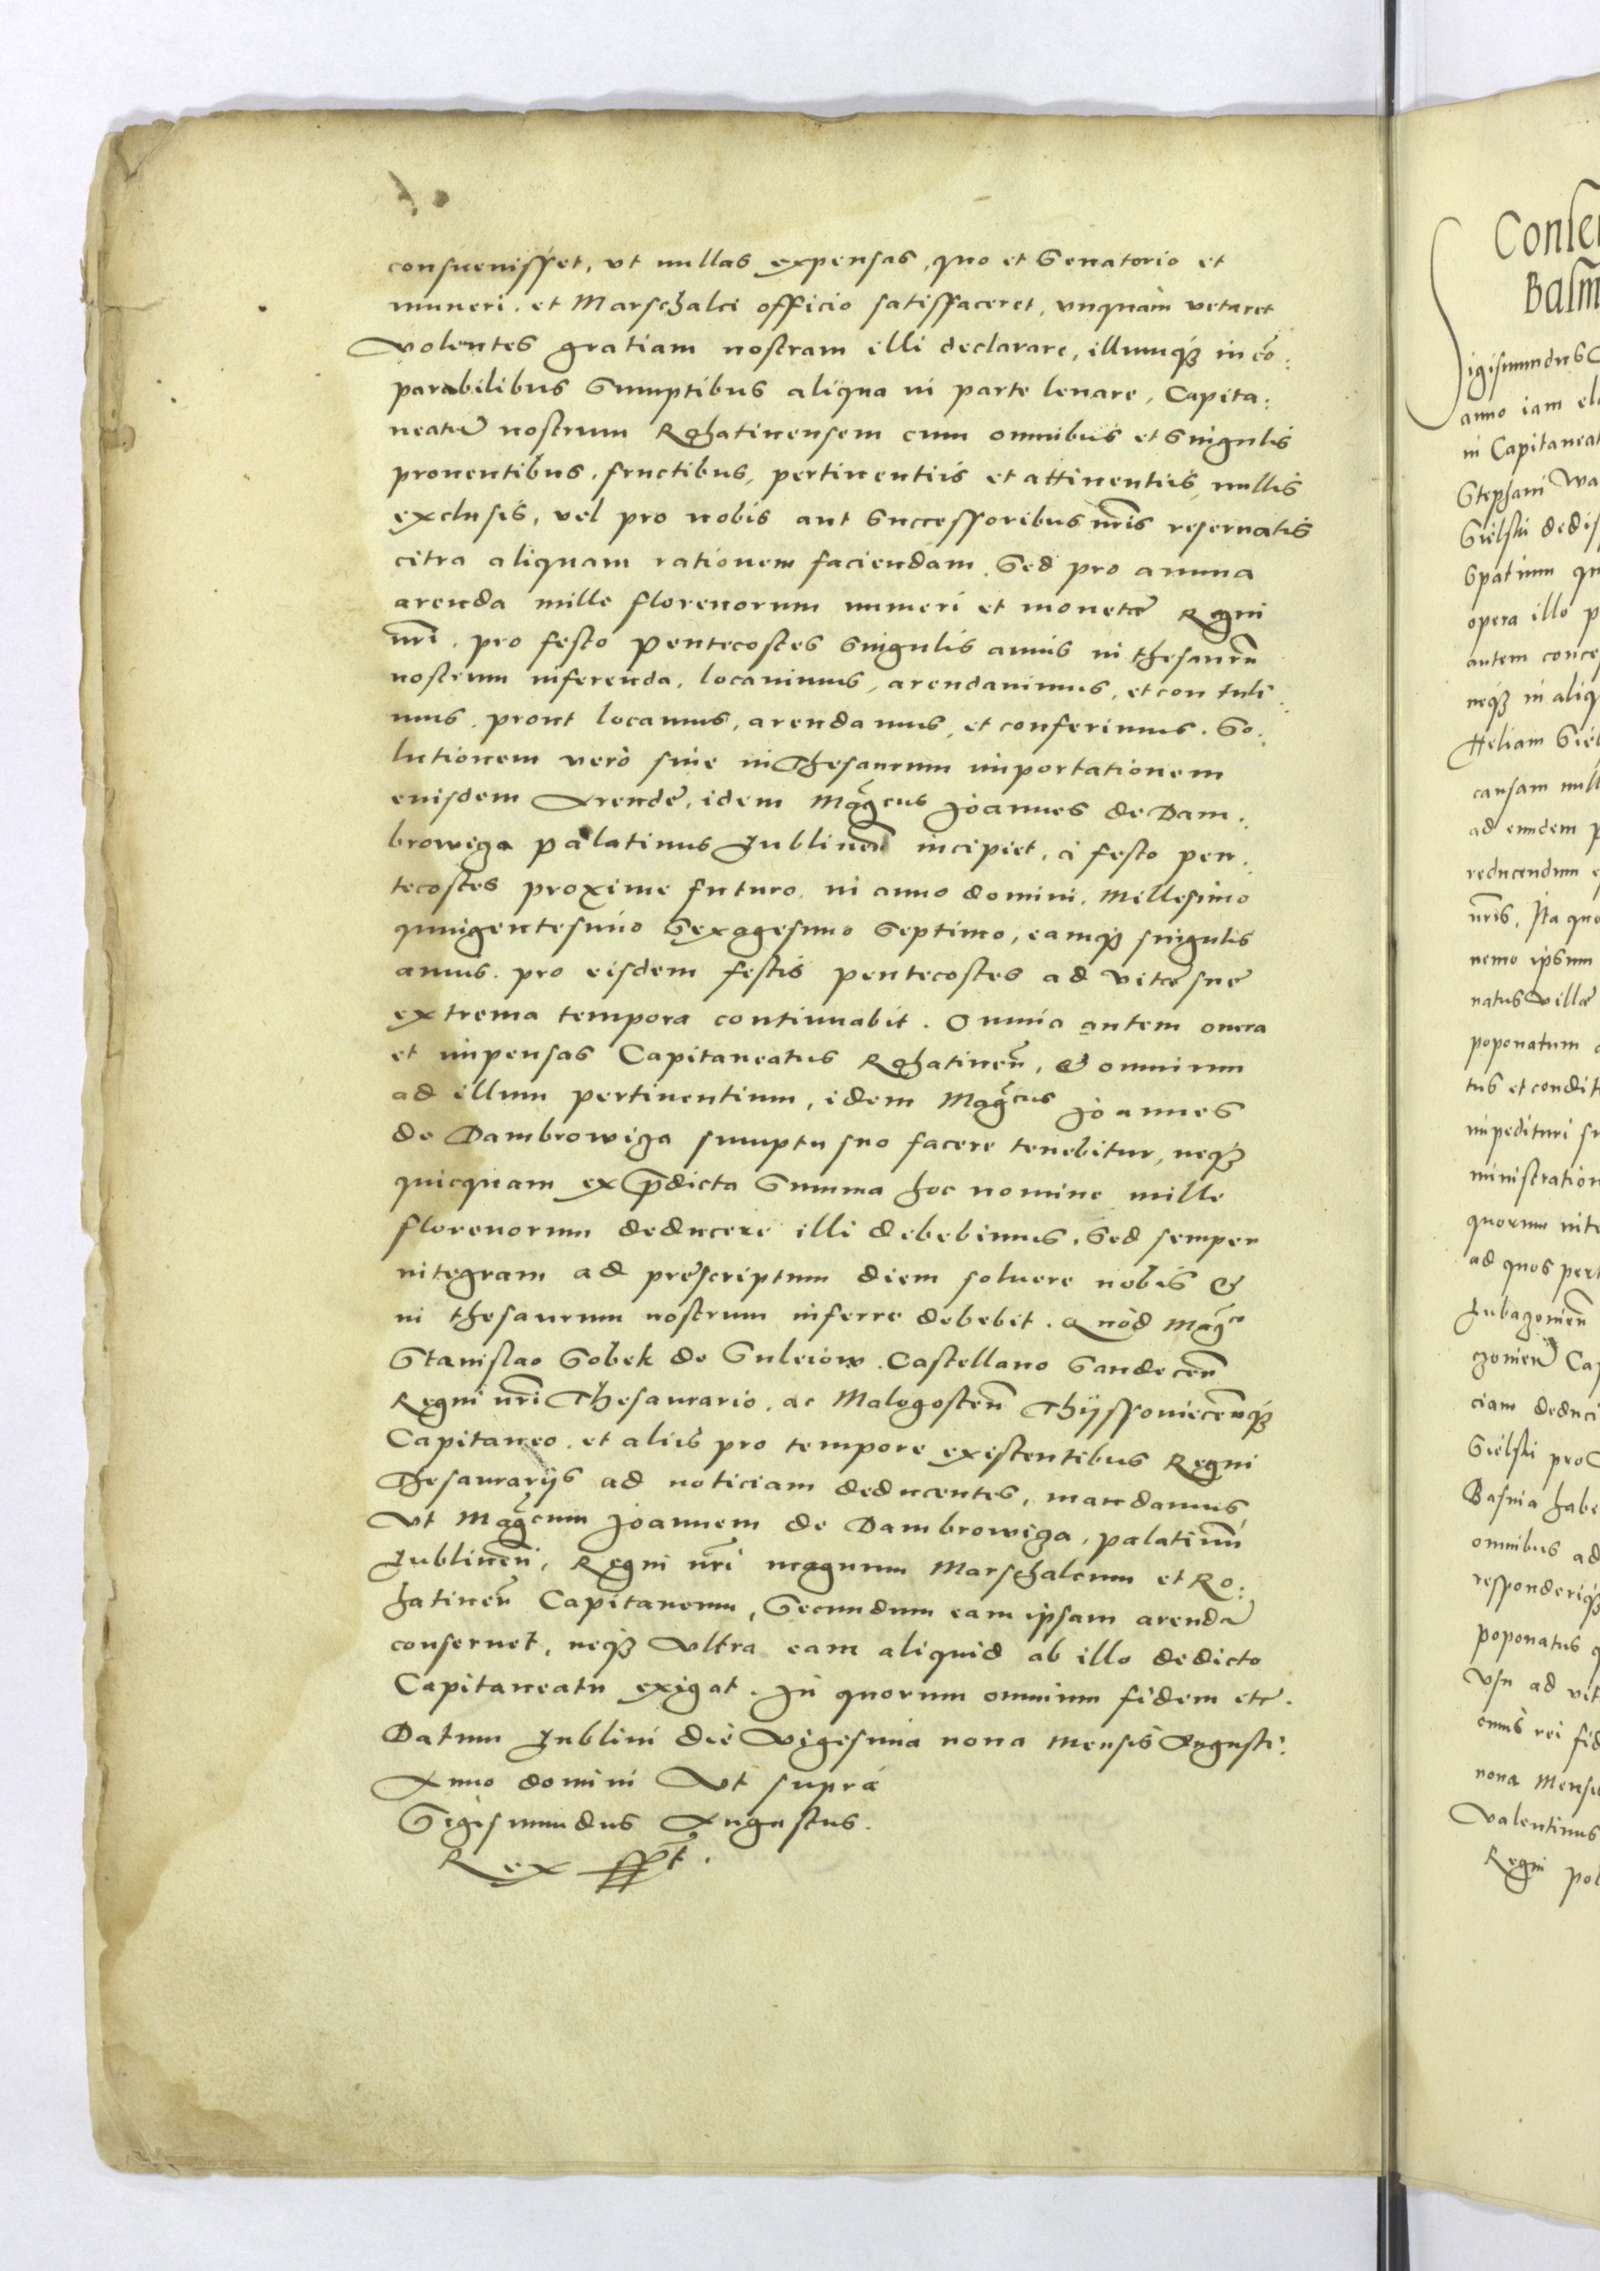 consueuisset, vt nullas expensas, quo et Senatorio et
muneri, et Marschalci officio satisfaceret, vnquàm vetaret
Volentes gratiam nostram illi declarare, illumq3 in cō:
parabilibus Sumptibus aliqua in parte leuare, Capita:
neatū nostrum Rohatinensem cum omnibus et Singulis
prouentibus, fructibus, pertinentiis et attinentiis, nullis
exclusis, vel pro nobis aut Successoribus nr̃is reseruatis
citra aliquam rationem faciendam. Sed pro annua
arenda mille florenorum numeri et monetæ Regni
nr̃i. pro festo Pentecostes Singulis annis in thesaurū
nostrum inferenda, locauimus, arendauimus, et contuli:
mus, prout locamus, arendamus, et conferimus. So:
lutionem verò siue in Thesaurum importationem
eiusdem Arendę, idem Mag̃cus Joannes de Dam:
browiza Palatinus Lublineñ incipiet, à festo Pen:
tecostes proxime futuro, in anno domini, Millesimo
quingentesimo Sexagesimo Septimo, eamq3 singulis
annis, pro eisdem festis pentecostes ad vitæ suę
extrema tempora continuabit. Omnia autem onera
et impensas Capitaneatus Rohatineñ, & omnium
ad illum pertinentium, idem Mag̃cus Joannes
de Dambrowiza sumptu suo facere tenebitur, neq3
quicquam ex p̄dicta Summa hoc nomine mille
florenorum deducere illi debebimus, Sed semper
integram ad prescriptum diem soluere nobis &
in thesaurum nostrum inferre debebit. Quòd Mag̃co
Stanislao Sobek de Suleiow, Castellano Sandeceñ
Regni nr̃i Thesaurario, ac Malogosteñ Thÿssouieceñq3
Capitaneo, et aliis pro tempore existentibus Regni
Thesaurarÿs ad noticiam deducentes, mandamus,
Vt Mag̃cum Joannem de Dambrowiza, Palatinū
Lublineñ, Regni nr̃i magnum Marschalcum et Ro:
hatineñ Capitaneum, Secundum eam ipsam arendā
conseruet, neq3 Vltra eam aliquid ab illo de dicto
Capitaneatu exigat. In quorum omnium fidem etc̃.
Datum Lublini die Vigesima nona Mensis Augusti.
Anno domini Vt suprà
Sigismundus Augustus.
Rex sspt̃.
Conse
Balm
Sigismundus
anno iam el
in Capitaneat
Stephani Wa
Sielski dedis
Spatium qu
opera illo p
autem conce
neq3 in aliq
Heliam Siel
causam null
ad eundem p
reducendum e
nr̃is, Ita quo
nemo ipsum
natus Villæ
poponatum
tus et condit
impedituri su
ministration
quorum inte
ad quos pert
Cap
ciam deduci
Sielski pro
Basnia habe
omnibus ad
responderiq3
poponatus q
Vsu ad vit
cuius rei fid
nona Mensis
Valentinus
Regni Pol